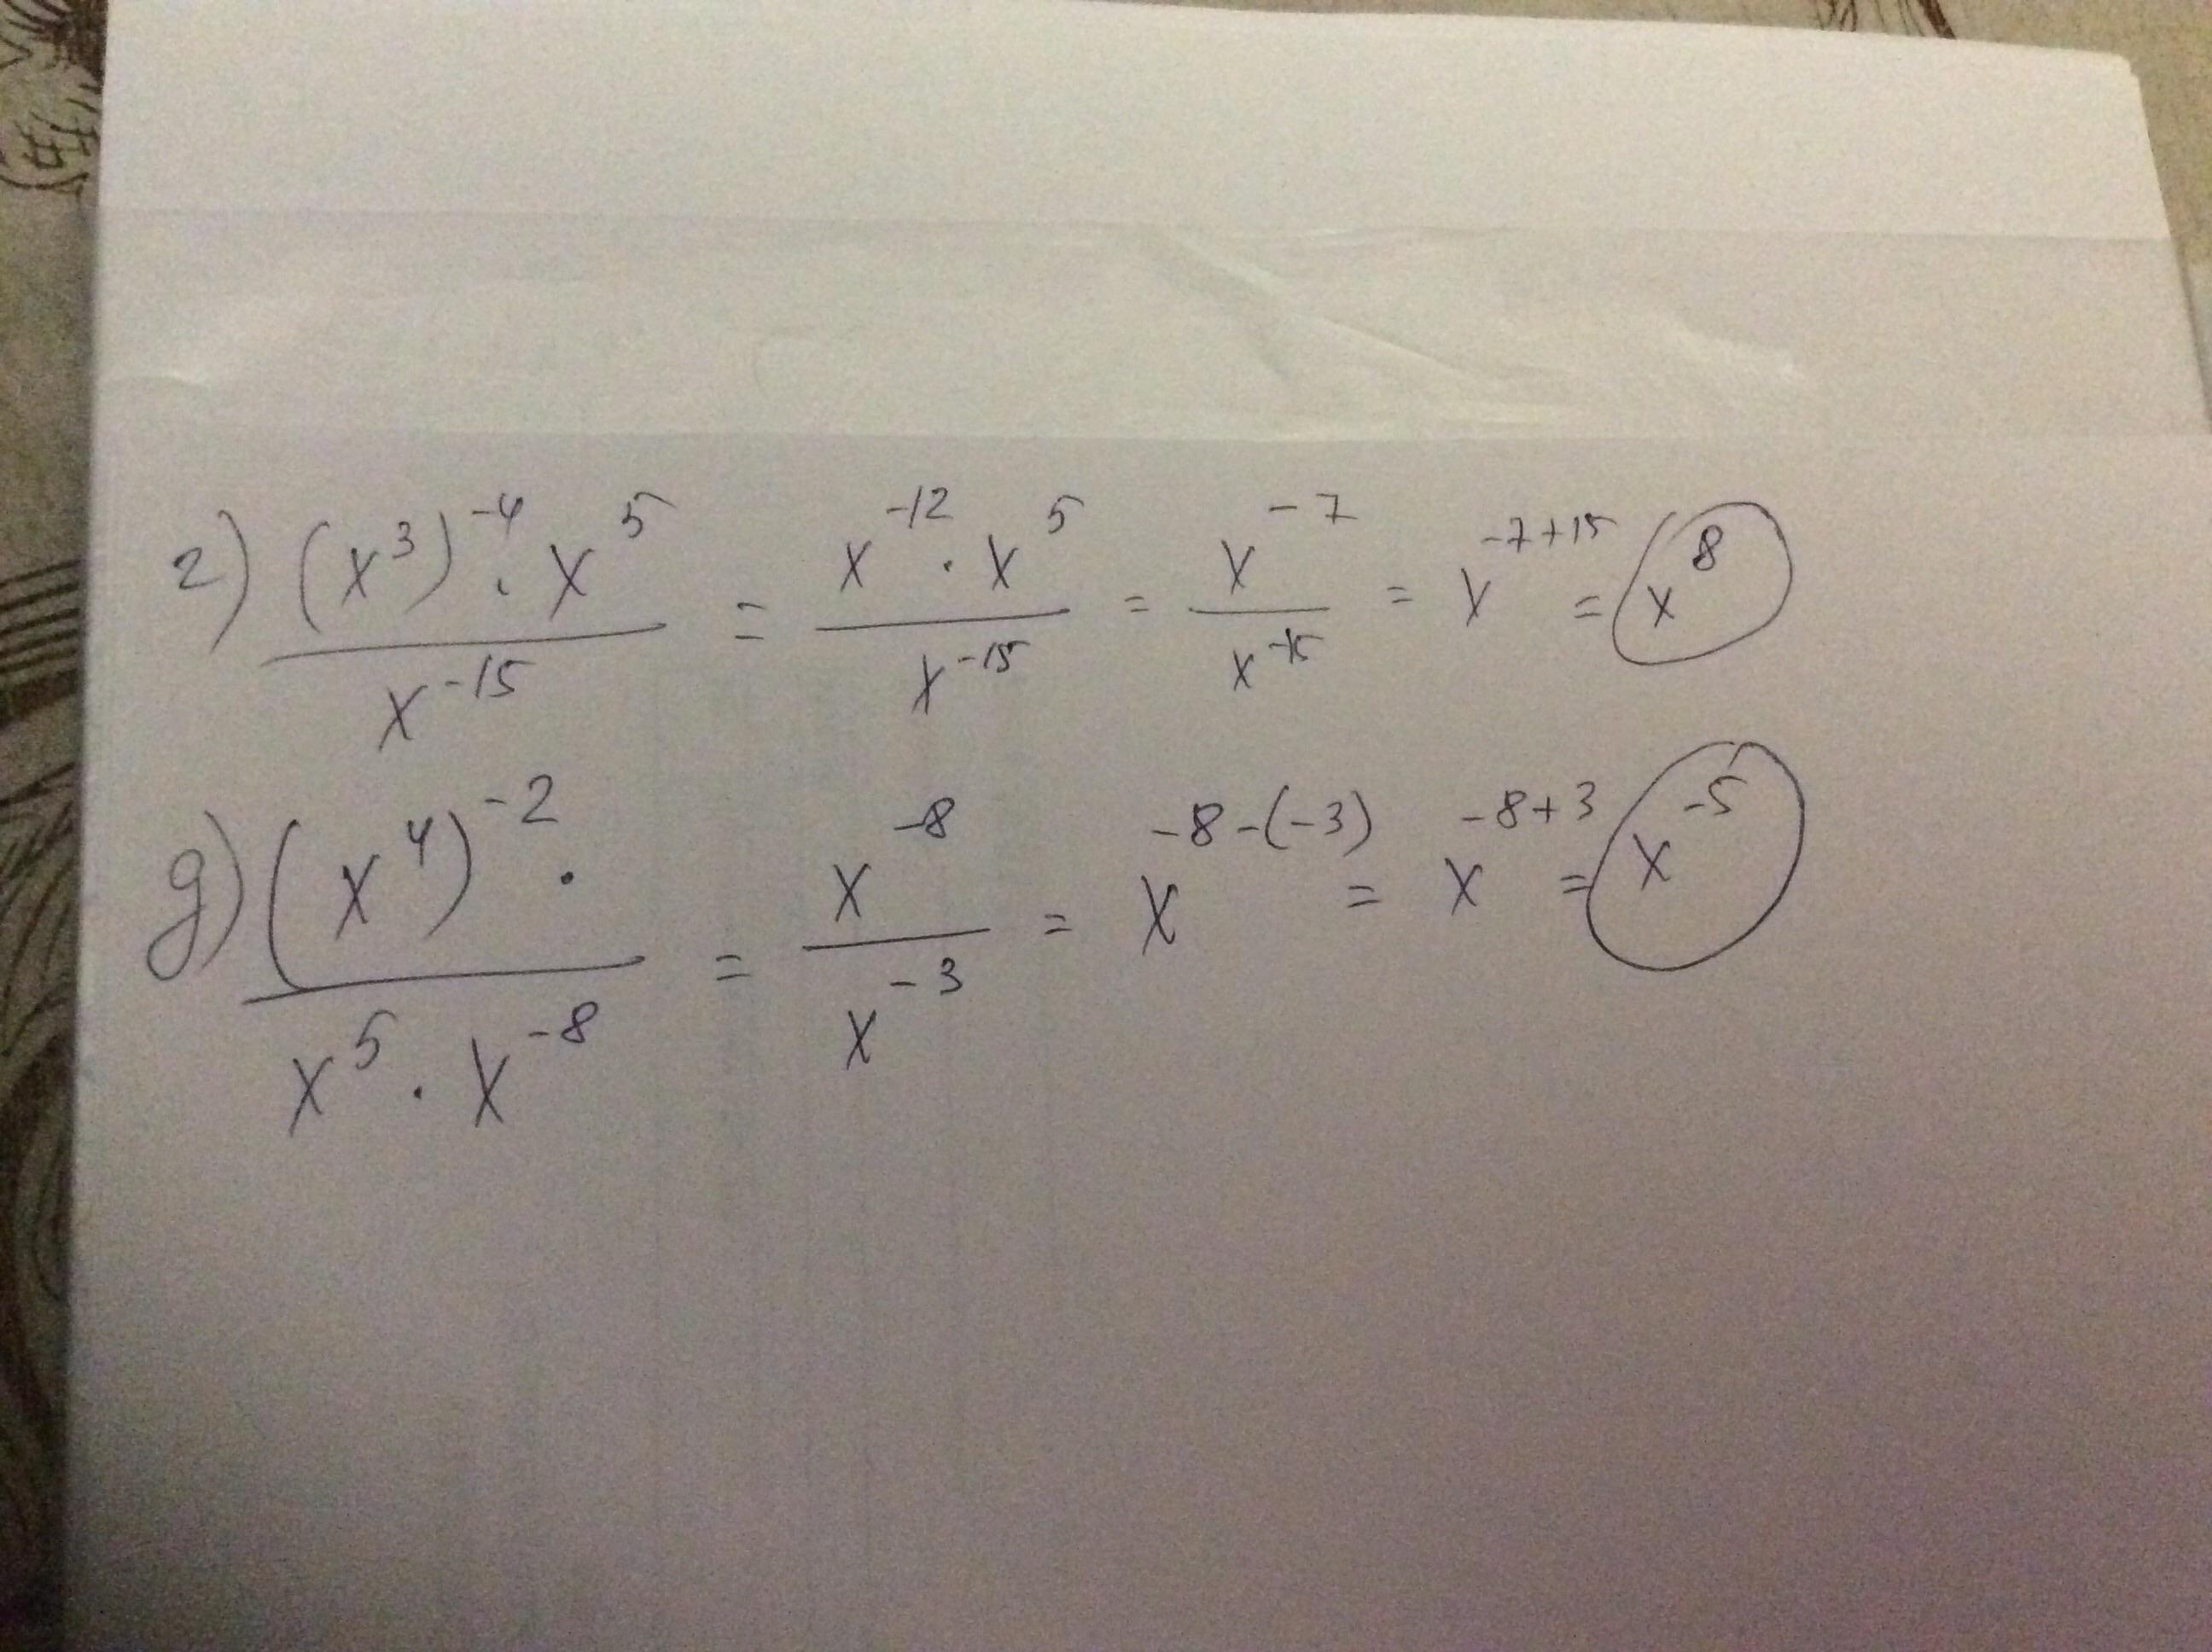 г) (x³)⁻⁴ · x⁵ / x⁻¹⁵ = x⁻¹² · x⁵ / x⁻¹⁵ = x⁻⁷ / x⁻¹⁵ = x⁻⁷⁺¹⁵ = x⁸
д) (x⁴)⁻² · / x⁵ · x⁻⁸ = x⁻⁸ / x⁻³ = x⁻⁸⁻⁽⁻³⁾ = x⁻⁸⁺³ = x⁻⁵